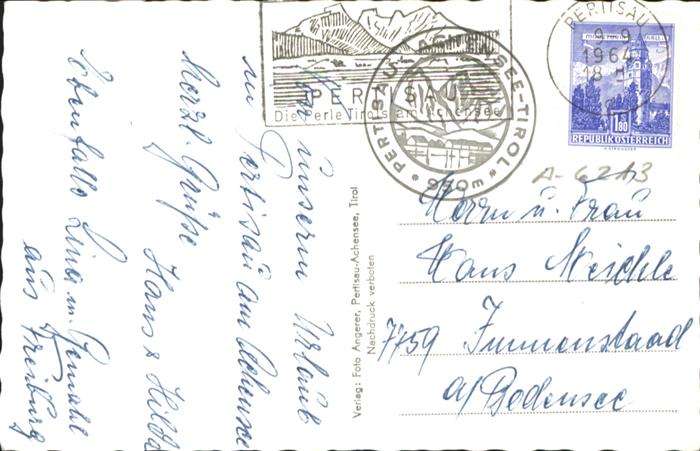 PERTISAU
Die Perle Tirols am Achensee
PERTISAU
ACHENSEE-TIROL
930 m
PERTISAU
9-9
1964
18
1.80
REPUBLIK ÖSTERREICH
A-6213
unserm Urlaub
in Pertisau am Achensee
Herzl. Grüße
Hans & Hilde
Ebenfalls Lina u. Gemahl
aus Freiburg
Verlag: Foto Angerer, Pertisau-Achensee, Tirol
Nachdruck verboten
Herrn u. Frau
Hans Meichle
7759 Immenstaad
a/Bodensee